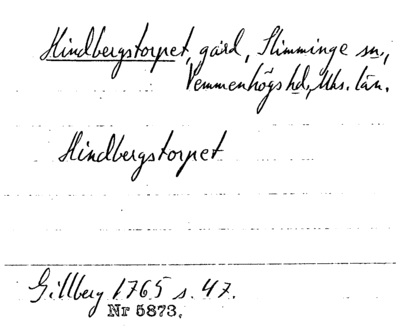 Hindbergstorpet, gård, Slimminge sn.,
Vemmenhögs hd, Mhs. län.
Hindbergstorpet
Gillberg 1765 s. 47.
Nr 5873.